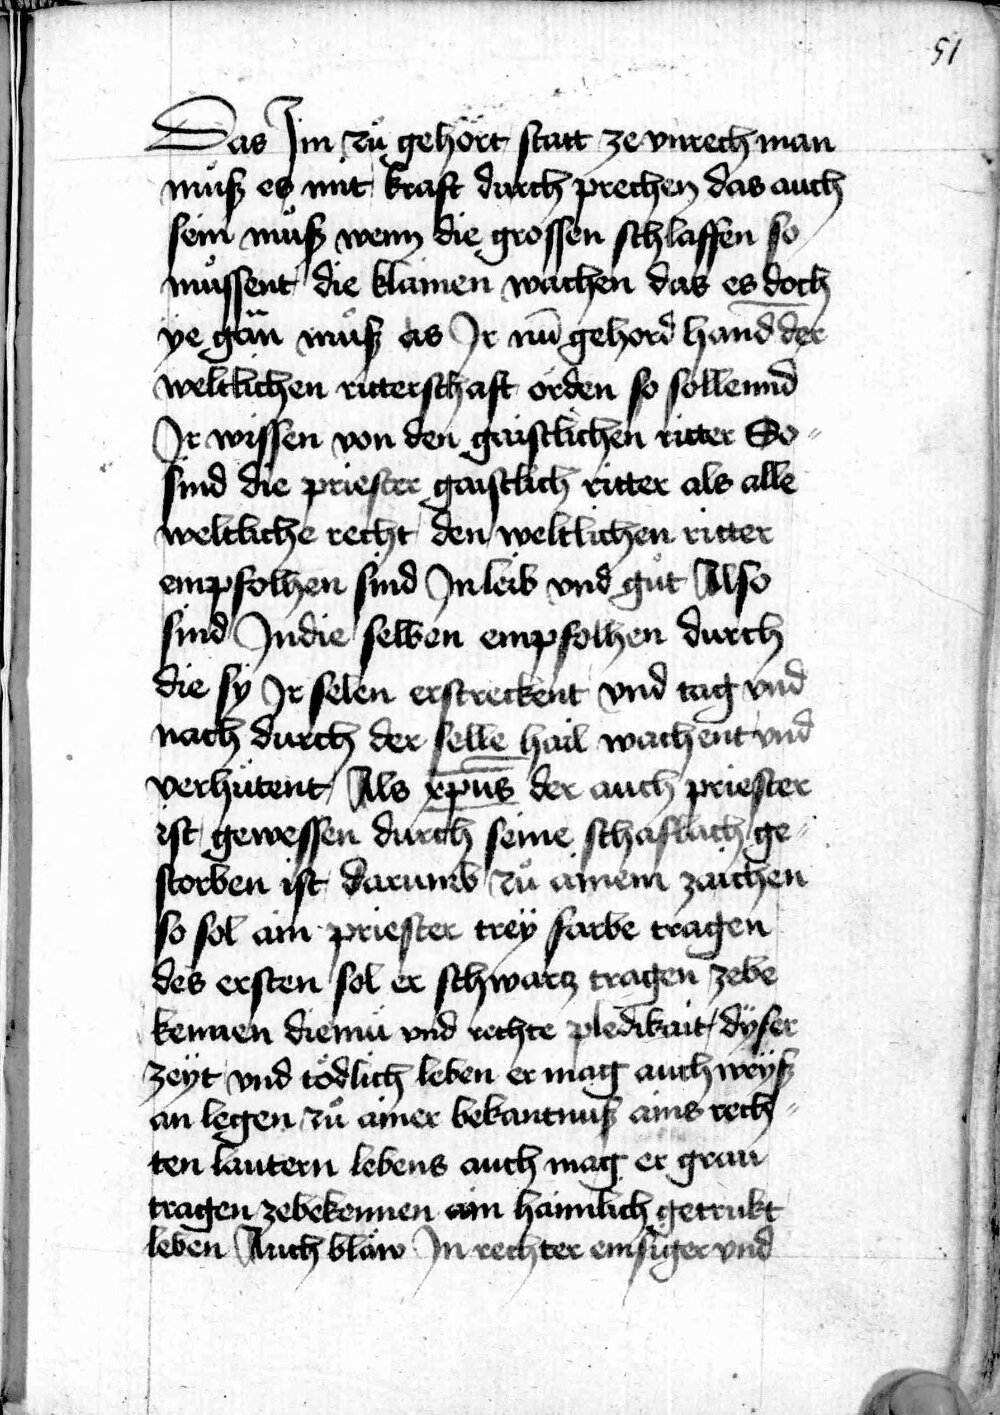 51
Das Im zů gehört statt ze vnrech man
můß es mit kraft durch prechen das auch
sein můß wenn die grossen schlaffen so
můssent die klainen wachen das es doch
ye gän můß as Ir nū gehord hand der
weltlichen ritterschaft örden so sollennd
Ir wissen von den gaistlichen ritter So=
sind die priester gaistlich ritter als alle
weltliche recht den weltlichen ritter
empfolhen sind In leib vnd gůt Also
sind In die selben empfolhen durch
die sy Ir selen erstreckent vnd tag vnd
nach durch der selle hail wachent vnd
verhütent Als xp̄us der auch priester
ist gewessen durch seine schaflach ge=
storben ist darumb zů ainem zaichen
so sol ain priester trey farbe tragen
des ersten sol er schwartz tragen zebe
kennen diemü vnd rechte pledikait dyser
zeyt vnd tödlich leben er mag auch weyß
an legen zů ainer bekantnuß ains rech=
ten lautern lebens auch mag er grau
tragen zebekennen ain haimlich getrukt
leben Auch blaw In rechter emsiger vnd